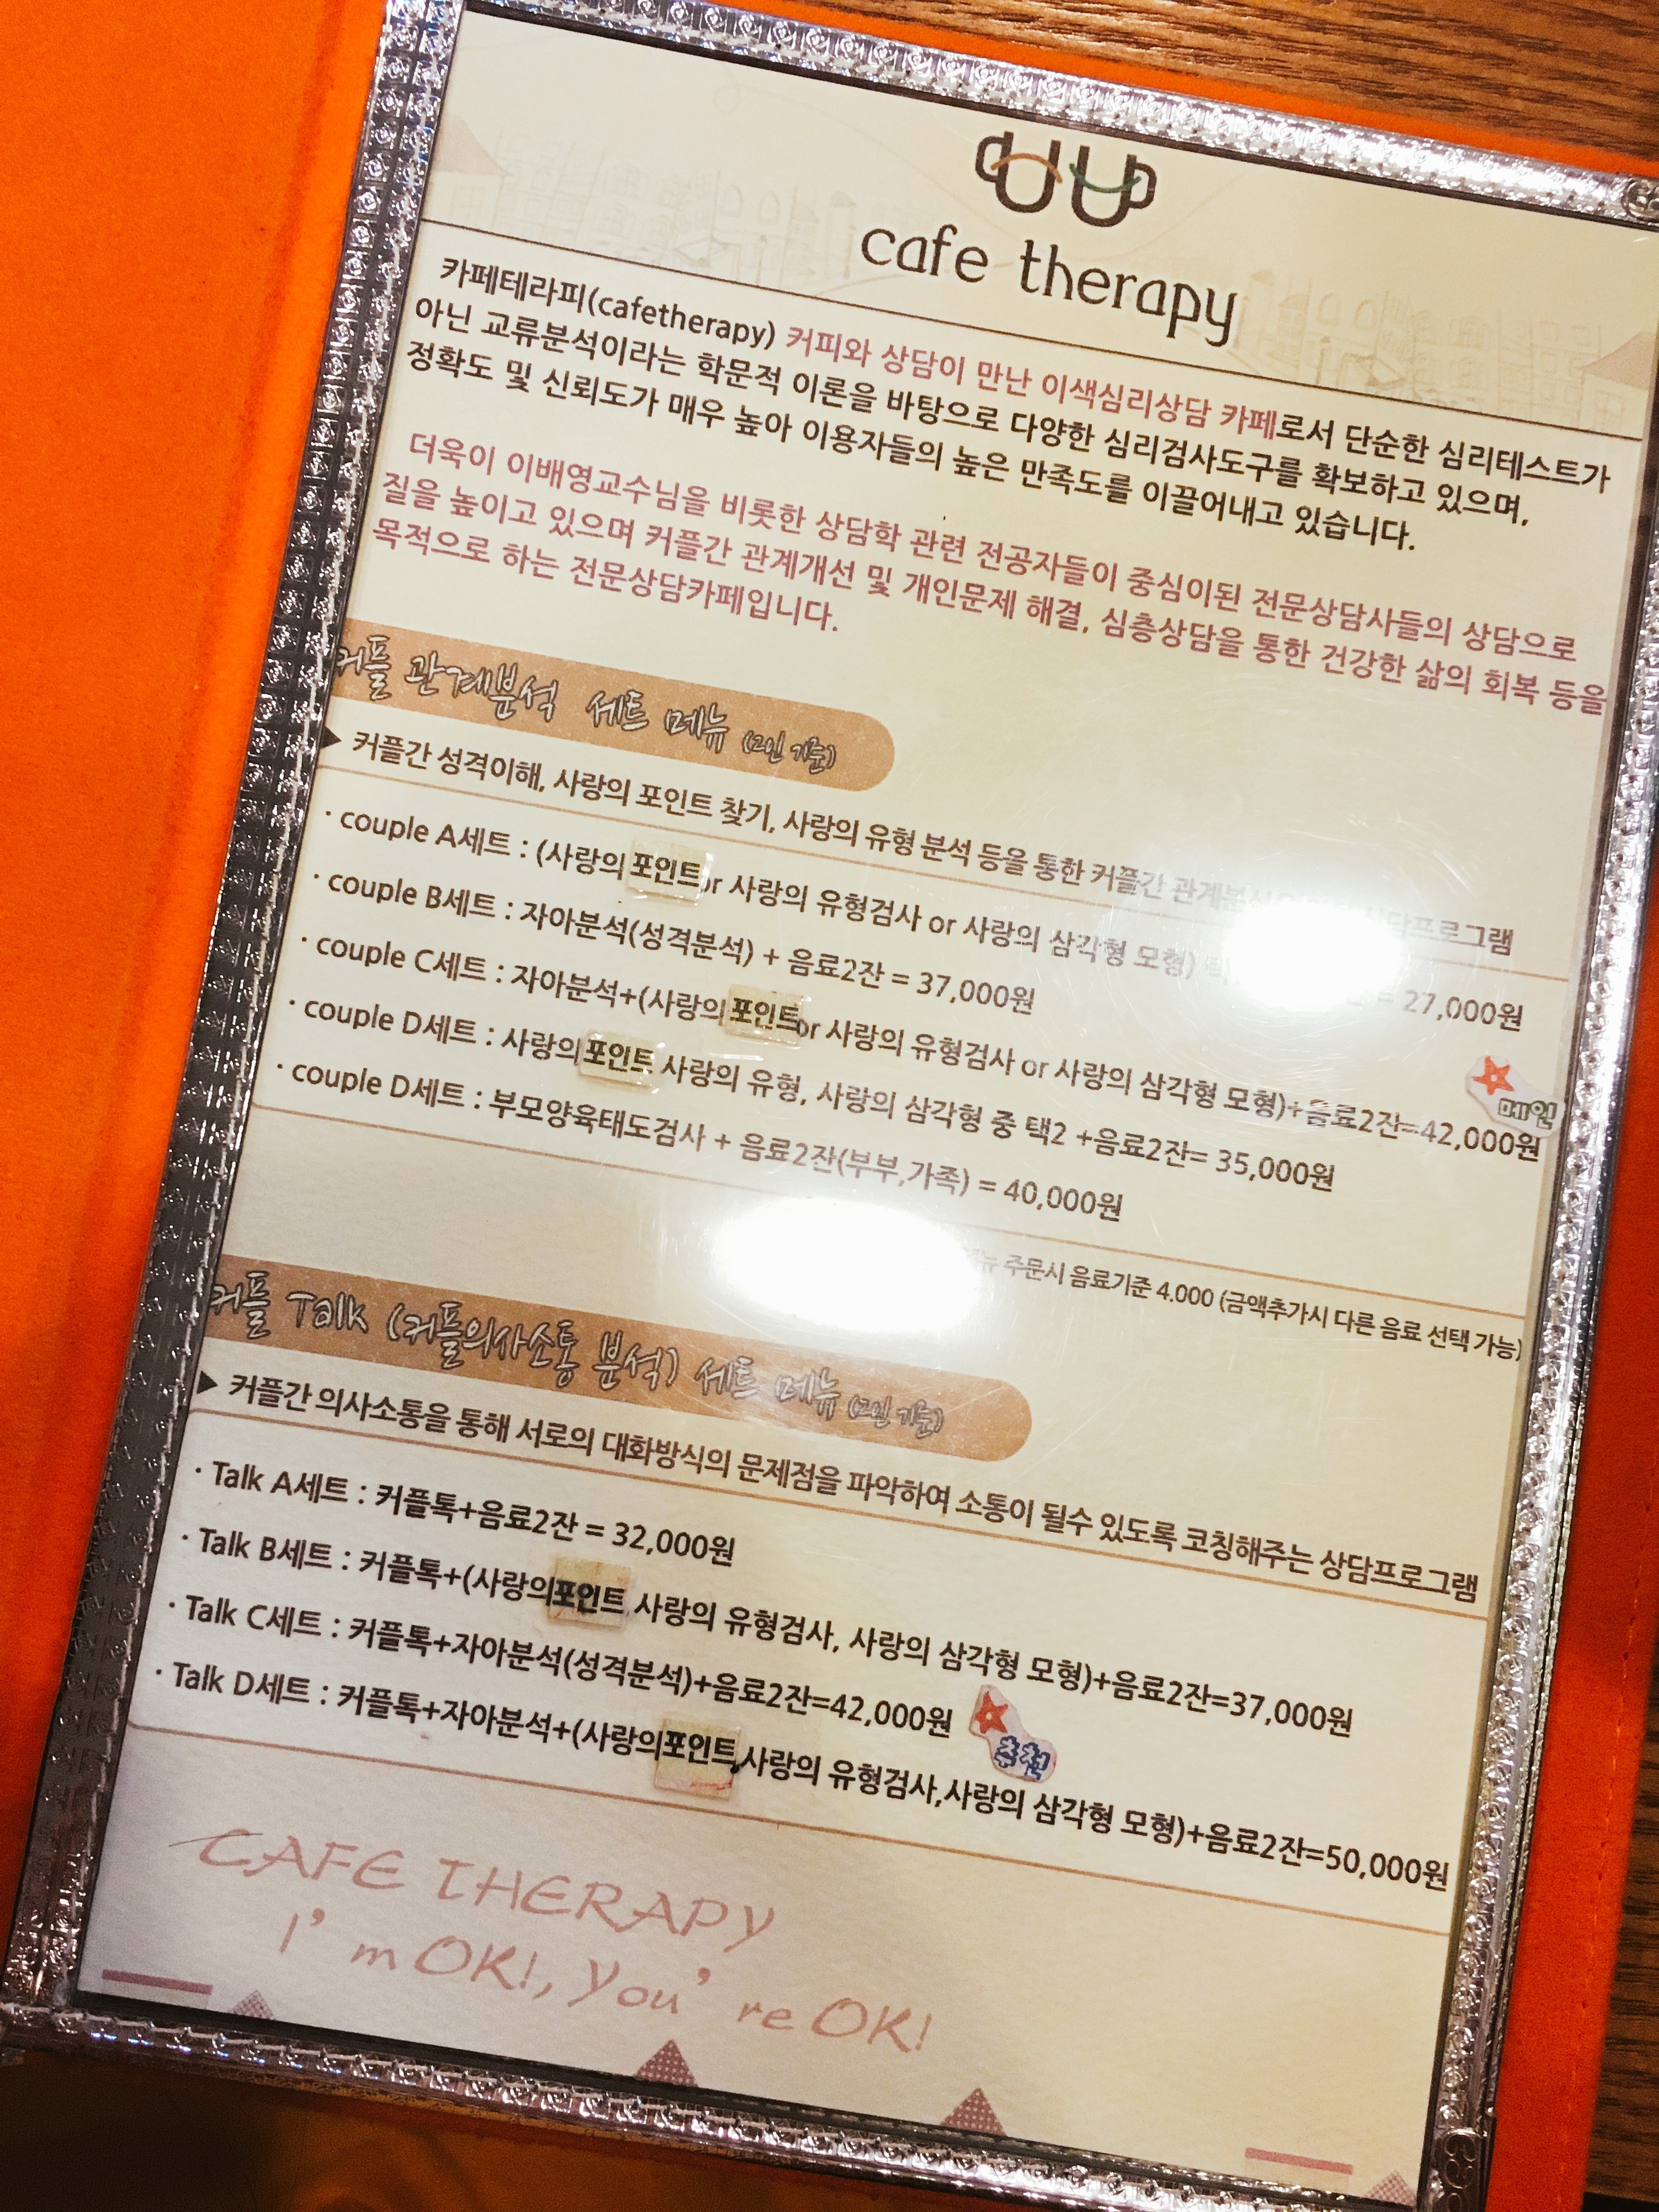 cafe therapy
카페테라피(cafetherapy) 커피와 상담이 만난 이색심리상담 카페로서 단순한 심리테스트가
아닌 교류분석이라는 학문적 이론을 바탕으로 다양한 심리검사도구를 확보하고 있으며,
정확도 및 신뢰도가 매우 높아 이용자들의 높은 만족도를 이끌어내고 있습니다.
더욱이 이배영교수님을 비롯한 상담학 관련 전공자들이 중심이된 전문상담사들의 상담으로
질을 높이고 있으며 커플간 관계개선 및 개인문제 해결, 심층상담을 통한 건강한 삶의 회복 등을
목적으로 하는 전문상담카페입니다.
커플 관계분석 세트 메뉴 (2인 기준)
▶ 커플간 성격이해, 사랑의 포인트 찾기, 사랑의 유형 분석 등을 통한 커플간 상담프로그램
· couple A세트 : (사랑의 포인트 or 사랑의 유형검사 or 사랑의 삼각형 모형) = 27,000원
· couple B세트 : 자아분석(성격분석) + 음료2잔 = 37,000원
· couple C세트 : 자아분석+(사랑의 포인트 or 사랑의 유형검사 or 사랑의 삼각형 모형)+음료2잔=42,000원
메인
· couple D세트 : 사랑의 포인트 사랑의 유형, 사랑의 삼각형 중 택2 +음료2잔= 35,000원
· couple D세트 : 부모양육태도검사 + 음료2잔(부부,가족) = 40,000원
주문시 음료기준 4.000 (금액추가시 다른 음료 선택 가능)
커플 Talk (커플의사소통 분석) 세트 메뉴 (2인 기준)
▶ 커플간 의사소통을 통해 서로의 대화방식의 문제점을 파악하여 소통이 될수 있도록 코칭해주는 상담프로그램
· Talk A세트 : 커플톡+음료2잔 = 32,000원
· Talk B세트 : 커플톡+(사랑의포인트, 사랑의 유형검사, 사랑의 삼각형 모형)+음료2잔=37,000원
· Talk C세트 : 커플톡+자아분석(성격분석)+음료2잔=42,000원
추천
· Talk D세트 : 커플톡+자아분석+(사랑의포인트,사랑의 유형검사,사랑의 삼각형 모형)+음료2잔=50,000원
CAFE THERAPY
I'm OK!, You're OK!